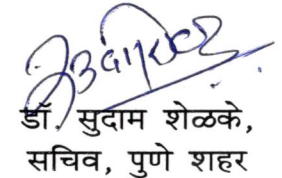 डॉ. सुदाम शेळके,
सचिव, पुणे शहर